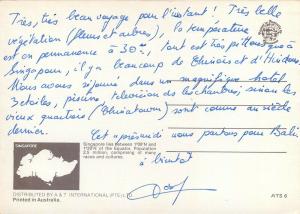 Très, très beau voyage pour l'instant ! Très belle
végétation (fleurs et arbres), la température
est en permanence à 30°, tout est très
Singapour, il y a beaucoup de Chinois et d'Hindous.
Nous avons séjourné dans un magnifique hotel
3 étoiles, piscine, télévision ds les chambres, sinon les
vieux quartiers (Chinatown) sont comme au siècle
dernier.
Cet après midi nous partons pour Bali
à bientôt
SINGAPORE
Singapore lies Between 1°09'N and
1°29'N of the Equator. Population
2.5 million, comprising of many
races and cultures.
DISTRIBUTED BY A & T INTERNATIONAL (PTE) LTD.
Printed in Australia.
ATS 6